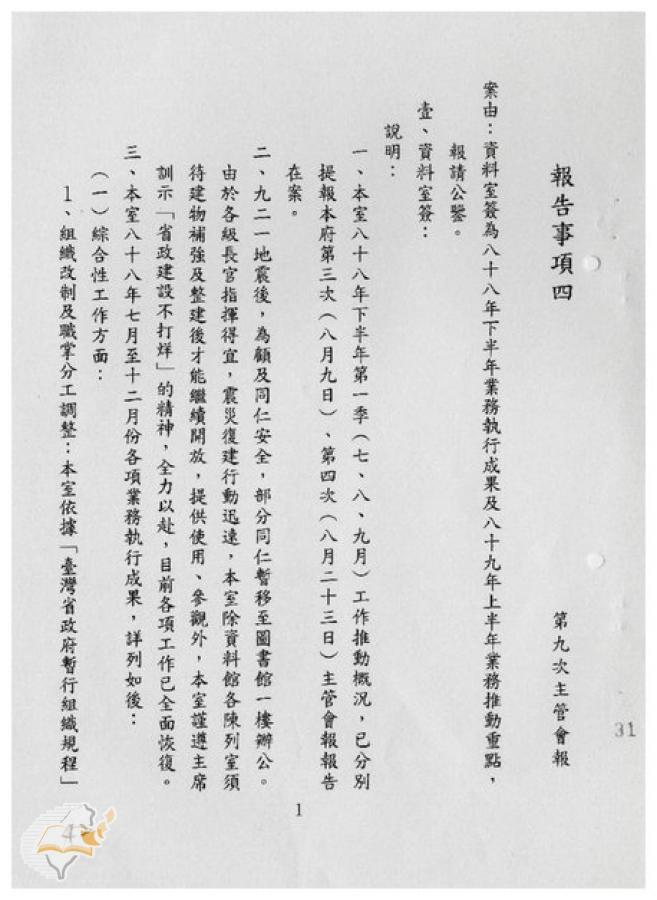 報告事項四
第九次主管會報
案由：資料室簽為八十八年下半年業務執行成果及八十九年上半年業務推動重點，
報請公鑒。
壹、資料室簽：
說明：
一、本室八十八年下半年第一季（七、八、九月）工作推動概況，已分別
提報本府第三次（八月九日）、第四次（八月二十三日）主管會報報告
在案。
二、九二一地震後，為顧及同仁安全，部分同仁暫移至圖書館一樓辦公。
由於各級長官指揮得宜，震災復建行動迅速，本室除資料館各陳列室須
待建物補強及整建後才能繼續開放，提供使用、參觀外，本室謹遵主席
訓示「省政建設不打烊」的精神，全力以赴，目前各項工作已全面恢復。
三、本室八十八年七月至十二月份各項業務執行成果，詳列如後：
（一）綜合性工作方面：
1、組織改制及職掌分工調整：本室依據「臺灣省政府暫行組織規程」
1
31